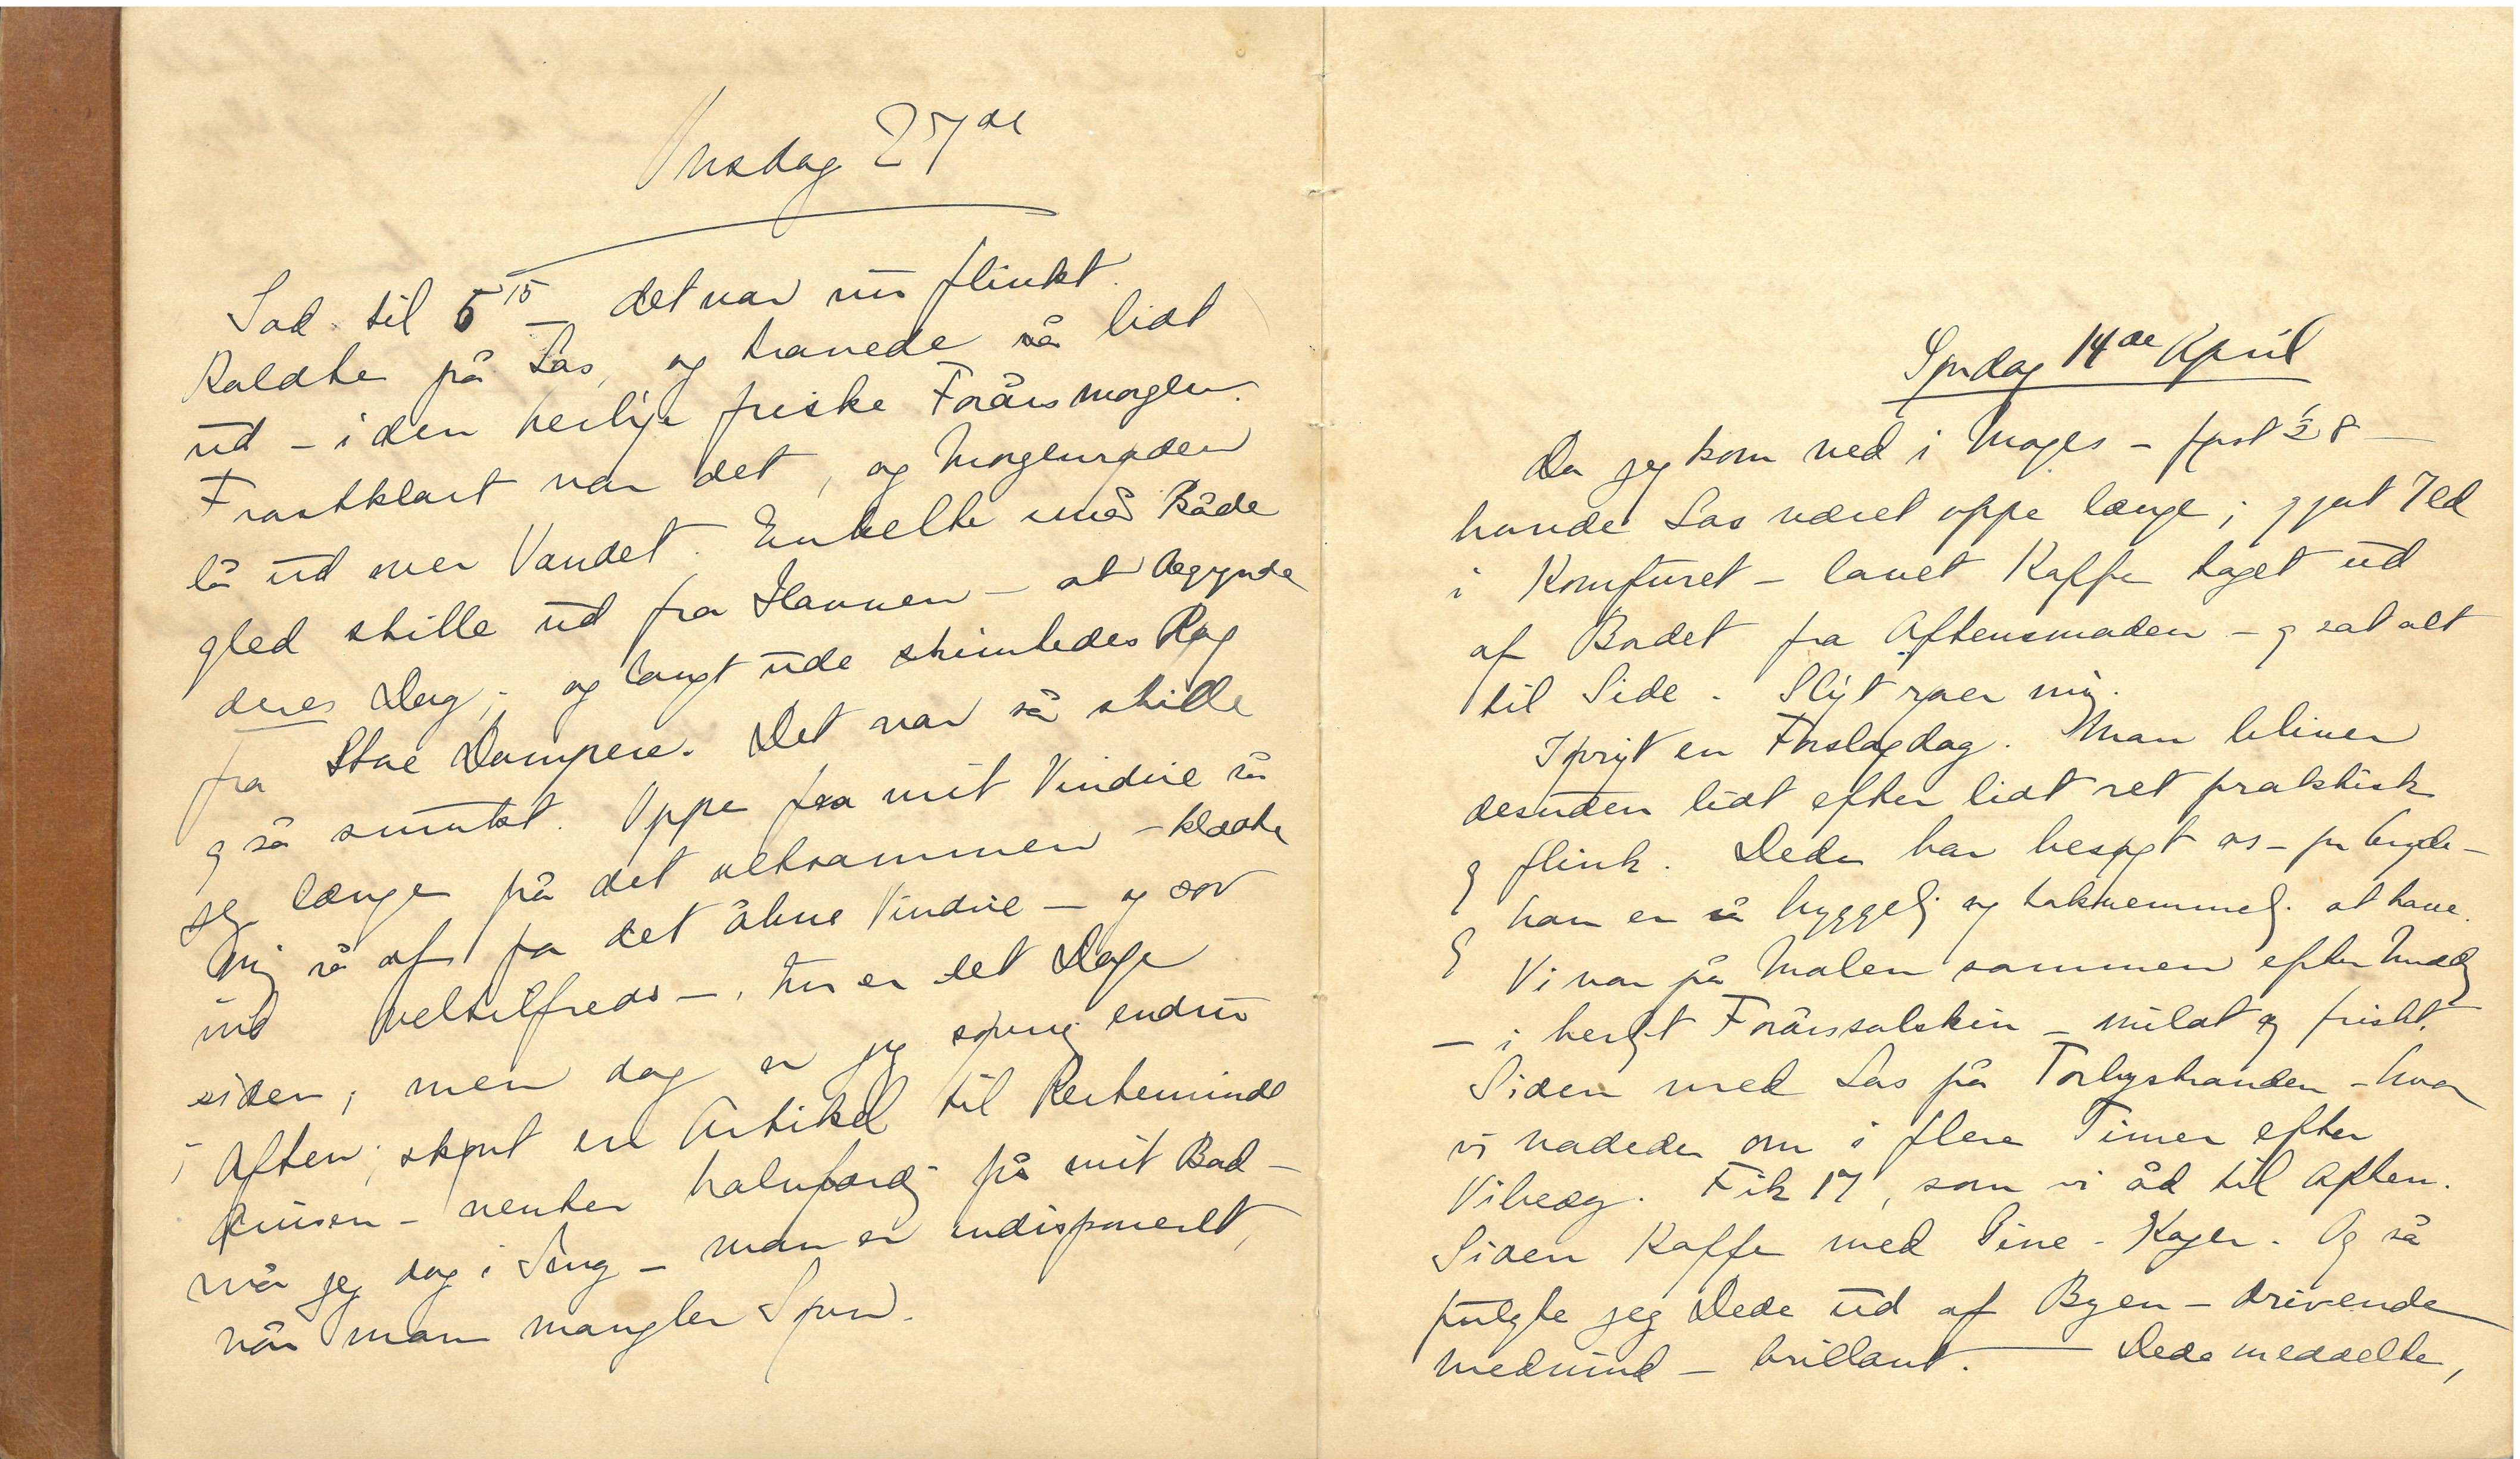 Onsdag 27de
Sad til 5 15 – det var nu flinkt.
Kaldte på Las, og travede så lidt
ud – i den herlige friske Forårsmorgen.
Frostklart var det, og Morgenrøden
lå ud over Vandet. Enkelte små Både
gled stille ud fra Havnen – at begynde
deres Dag; og langt ude skimtedes Røg
fra Store Dampere. Det var så stille
og så smukt. Oppe fra mit Vindue så
jeg længe på det altsammen – klædte
mig så af for det åbne Vindue – og sov
ind veltilfreds –. Nu er det Dage
siden; men dog er jeg søvnig endnu
i Aften; skønt en Artikel til Kerteminde
Avisen – venter halvfærdig på mit Bord –
må jeg dog i Seng – man er indisponeret,
når man mangler Søvn.
Søndag 14de April
Da jeg kom ned i Morges – først ½ 8 –
havde Las været oppe længe; gjort Ild
i Komfuret – lavet Kaffe taget ud
af Bordet fra Aftensmaden – og sat alt
til Side. Sligt rører mig.
Iøvrigt en Forslagdag. Man bliver
desuden lidt efter lidt ret praktisk
og flink. Dede har besøgt os –
og han er så hyggelig og taknemmelig at have.
Vi var på Molen sammen efter Middag
– i herligt Forårssolskin – mildt og friskt.
Siden med Las på Torbystranden – hvor
vi vadede om i flere Timer efter
Vibeæg. Fik 17, som vi åd til Aften.
Siden Kaffe med Tine-Kager. Og så
fulgte jeg Dede ud af Byen – drivende
medvind – brillant. — Dede meddelte,